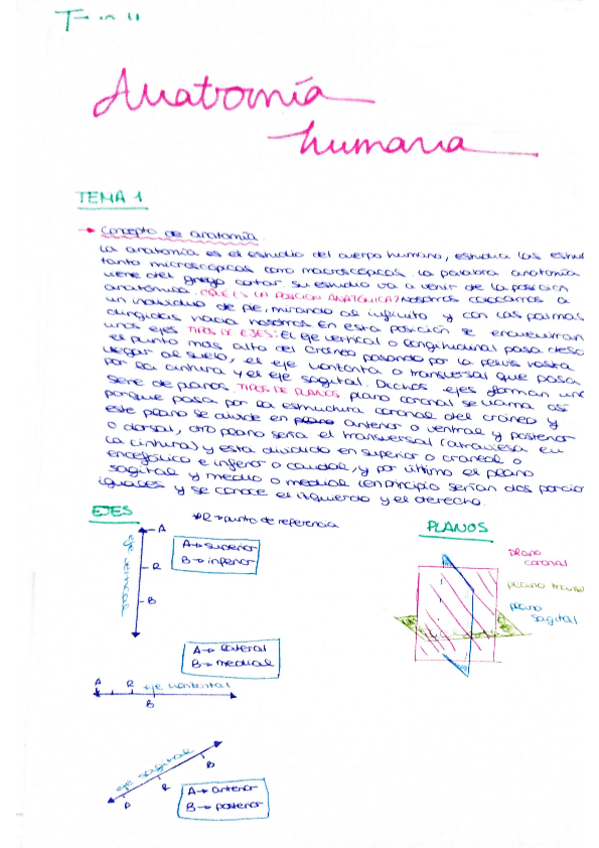 Anatomía
humana
TEMA 1
→ Concepto de anatomía
La anatomía es el estudio del cuerpo humano, estudia las estru
tanto microscópicas como macroscópicas. La palabra anatomía
viene del griego cortar. Su estudio va a venir de la posición
anatómica. ¿QUÉ ES LA POSICIÓN ANATÓMICA? Nosotros colocamos a
un individuo de pie, mirando al infinito y con las palmas
dirigidas hacia nosotros. En esta posición se encuentran
unos ejes TIPOS DE EJES: El eje vertical o longitudinal pasa desd
el punto más alto del cráneo pasando por la pelvis hasta
llegar al suelo, el eje horizontal o transversal que pasa
por la cintura y el eje sagital. Dichos ejes forman una
serie de planos. TIPOS DE PLANOS plano coronal se llama así
porque pasa por la estructura coronal del cráneo y
este plano se divide en plano anterior o ventral y posterior
o dorsal, otro plano sería el transversal (atraviesa en
la cintura) y esta dividido en superior o craneal o
encefálico e inferior o caudal, y por último el plano
sagital y medio o medial (en principio serían dos porcion
iguales y se conoce el izquierdo y el derecho.
EJES
*R → punto de referencia
PLANOS
A
R
B
eje vertical
A → superior
B → inferior
plano
coronal
plano transv
plano
sagital
A → lateral
B → medial
A R eje horizontal
B
eje sagital
A
R
B
A → anterior
B → posterior